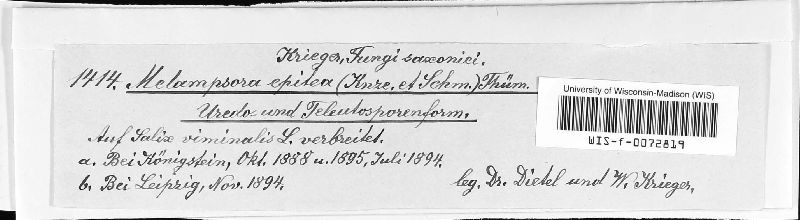 Krieger, Fungi saxonici.
1414. Melampsora epitea (Knze. et Schm.) Thüm.
Uredo und Teleutosporenform.
Auf Salix viminalis L. verbreitet.
a. Bei Königstein, Okt. 1888 u. 1895, Juli 1894.
b. Bei Leipzig, Nov. 1894.
leg. Dr. Dietel und W. Krieger.
University of Wisconsin-Madison (WIS)
WIS-f-0072819